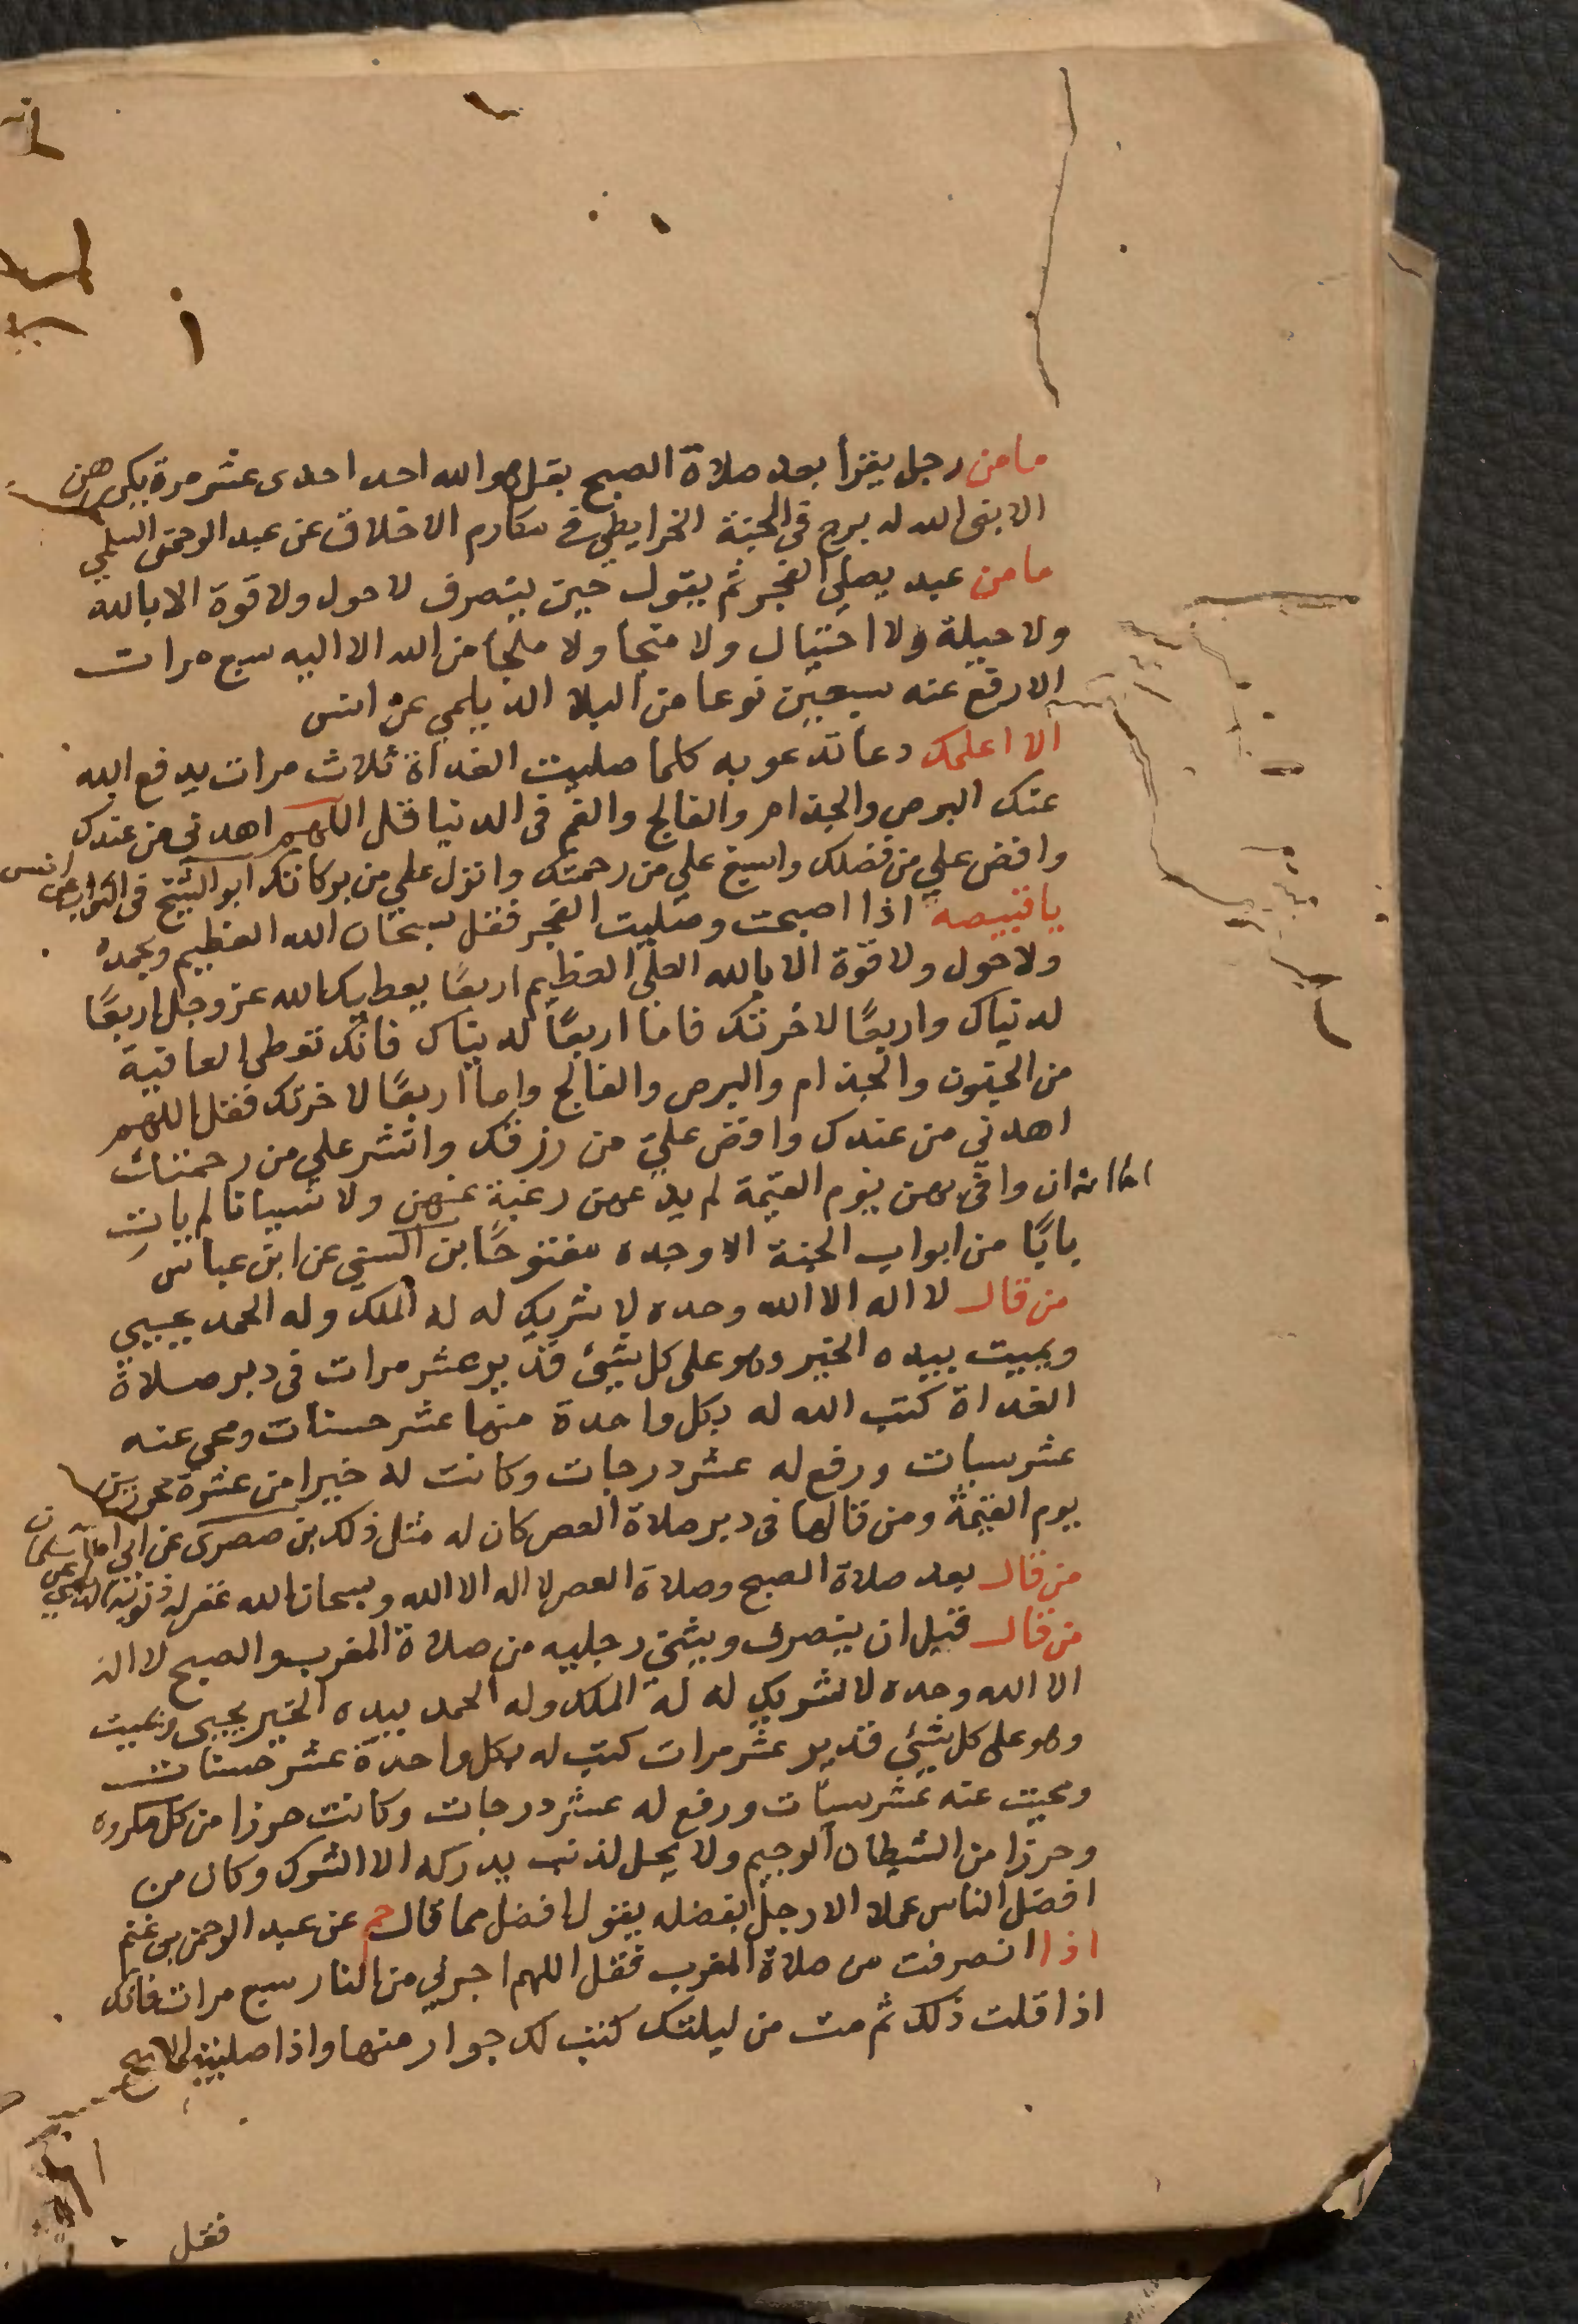 ما من رجل يقرأ بعد صلاة الصبح بقل هو الله احد احدى عشر مرة يكررهن
الا بنى الله له برج فى الجنة الخرايطي فى مكارم الاخلاق عن عبد الرحمن السلمي
ما من عبد يصلي الفجر ثم يقول حين ينصرف لا حول ولا قوة الا بالله
ولا حيلة ولا احتيال ولا منجا ولا ملجا من الله الا اليه سبع مرات
الا رفع عنه سبعين نوعا من البلا الديلمي عن انس
الا اعلمك دعا تدعو به كلما صليت الغداة ثلاث مرات يدفع الله
عنك البرص والجذام والفالج والغم فى الدنيا قل اللهم اهدنى من عندك
وافض علي من فضلك واسبغ علي من رحمتك وانزل علي من بركاتك ابو الشيخ فى الثواب عن انس
يا قبيصه اذا اصبحت وصليت الفجر فقل سبحان الله العظيم وبحمده
ولا حول ولا قوة الا بالله العلي العظيم اربعًا يعطيك الله عز وجل اربعًا
لدنياك واربعًا لاخرتك فاما اربعًا لدنياك فانك تعطى العافية
من الجنون والجذام والبرص والفالج واما اربعًا لاخرتك فقل اللهم
اهدنى من عندك وافض عليّ من رزقك وانشر علي من رحمتك
ان وافى بهن يوم القيمة لم يدعهن رغبة عنهن ولا نسيانا لم يات
بابًا من ابواب الجنة الا وجده مفتوحًا بن السني عن ابن عباس
من قال لا اله الا الله وحده لا شريك له له الملك وله الحمد يحيي
ويميت بيده الخير وهو على كل شيئ قدير عشر مرات فى دبر صلاة
الغداة كتب الله له بكل واحدة منها عشر حسنات ومحى عنه
عشر سيات ورفع له عشر درجات وكانت له خيرا من عشرة محررين
يوم القيمة ومن قالها فى دبر صلاة العصر كان له مثل ذلك بن صصرى عن ابي امامة
من قال بعد صلاة الصبح وصلاة العصر لا اله الا الله وسبحان الله غفر له ذنوبه الديلمي عن سلمان
من قال قبل ان ينصرف ويثني رجليه من صلاة المغرب والصبح لا اله
الا الله وحده لا شريك له له الملك وله الحمد بيده الخير يحيى ويميت
وهو على كل شيئي قدير عشر مرات كتب له بكل واحدة عشر حسنات
ومحيت عنه عشر سيأت ورفع له عشر درجات وكانت حرزا من كل مكروه
وحرزا من الشيطان الرجيم ولا يحل لذنب يدركه الا الشرك وكان من
افضل الناس عملا الا رجلًا يفضله يقول افضل مما قال حم عن عبد الرحمن بن غنم
اذا انصرفت من صلاة المغرب فقل اللهم اجرني من النار سبع مرات فانك
اذا قلت ذلك ثم مت من ليلتك كتب لك جوار منها واذا صليت الصبح
فقل